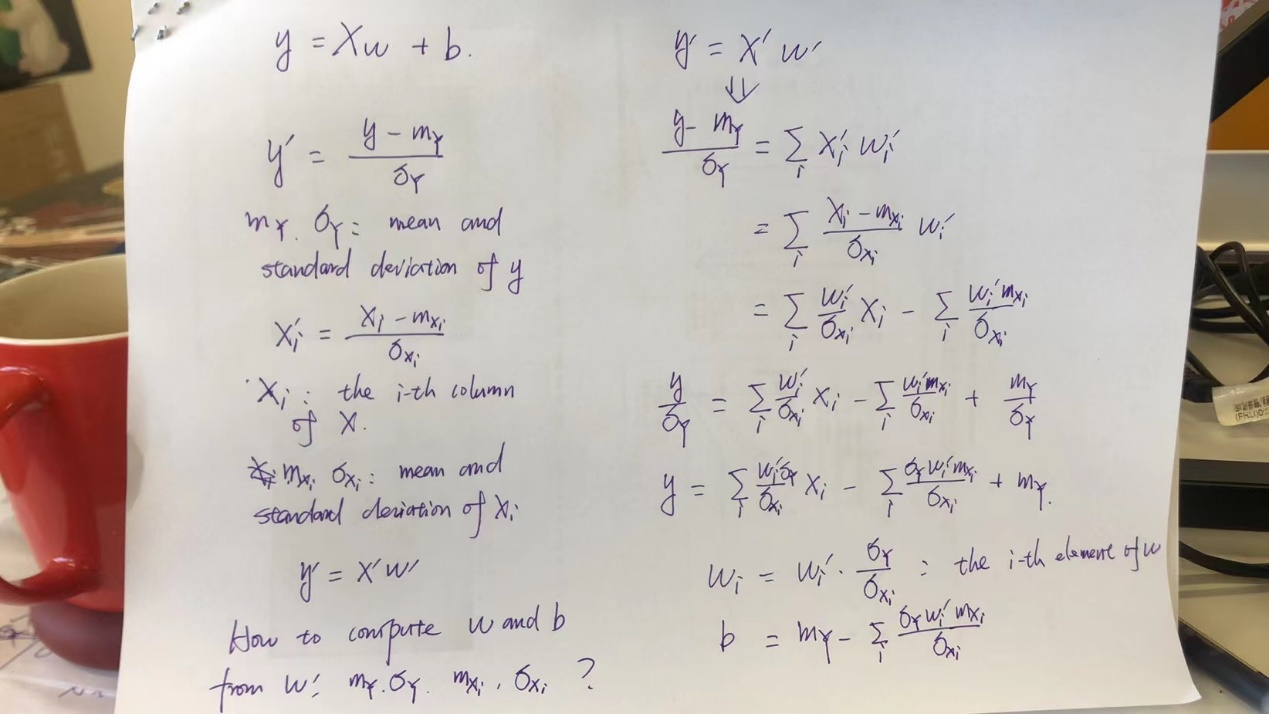 y = Xw + b.
y' = (y - m_Y) / σ_Y
m_Y. σ_Y: mean and
standard deviation of y
X_i' = (X_i - m_{X_i}) / σ_{X_i}
X_i: the i-th column
of X.
m_{X_i} σ_{X_i}: mean and
standard deviation of X_i
y' = X'w'
How to compute w and b
from w'. m_Y. σ_Y. m_{X_i}, σ_{X_i} ?
y' = X' w'
⇓
(y - m_Y) / σ_Y = Σ_i X_i' w_i'
= Σ_i (X_i - m_{X_i}) / σ_{X_i} w_i'
= Σ_i (w_i' / σ_{X_i}) X_i - Σ_i (w_i' m_{X_i}) / σ_{X_i}
y / σ_Y = Σ_i (w_i' / σ_{X_i}) X_i - Σ_i (w_i' m_{X_i}) / σ_{X_i} + m_Y / σ_Y
y = Σ_i (w_i' σ_Y / σ_{X_i}) X_i - Σ_i (σ_Y w_i' m_{X_i}) / σ_{X_i} + m_Y.
w_i = w_i' · σ_Y / σ_{X_i} : the i-th element of w
b = m_Y - Σ_i (σ_Y w_i' m_{X_i}) / σ_{X_i}